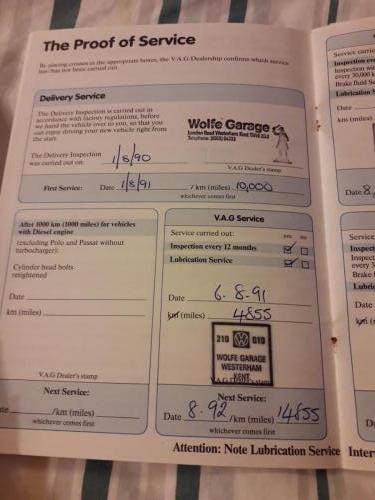 The Proof of Service
By placing crosses in the appropriate boxes, the V.A.G Dealership confirms which service
has/has not been carried out.
Delivery Service
The Delivery Inspection is carried out in
accordance with factory regulations, before
we hand the vehicle over to you, so that you
can enjoy driving your new vehicle right from
the start.
Wolfe Garage
London Road Westerham Kent
The Delivery Inspection
was carried out on: 1/8/90
V.A.G Dealer's stamp
First Service: Date 1/8/91 /km (miles) 10,000
whichever comes first
After 1000 km (1000 miles) for vehicles
with Diesel engine
(excluding Polo and Passat without
turbocharger):
Cylinder head bolts
retightened
Date
km (miles)
V.A.G Dealer's stamp
Next Service:
/km (miles)
whichever comes first
V.A.G Service
Service carried out: yes no
Inspection every 12 months
Lubrication Service
Date 6.8.91
km (miles) 4855
210 010
WOLFE GARAGE
WESTERHAM
KENT
V.A.G Dealer's stamp
Next Service:
Date 8.92 /km (miles) 14855
whichever comes first
Attention: Note Lubrication Service
Service carrie
Inspection eve
Inspection wit
every 30,000 k
Brake fluid Se
Lubrication
Date
km (miles)
Date 8
Service
Inspect
Inspect
every 3
Brake
Lubric
Date
km (
Inter